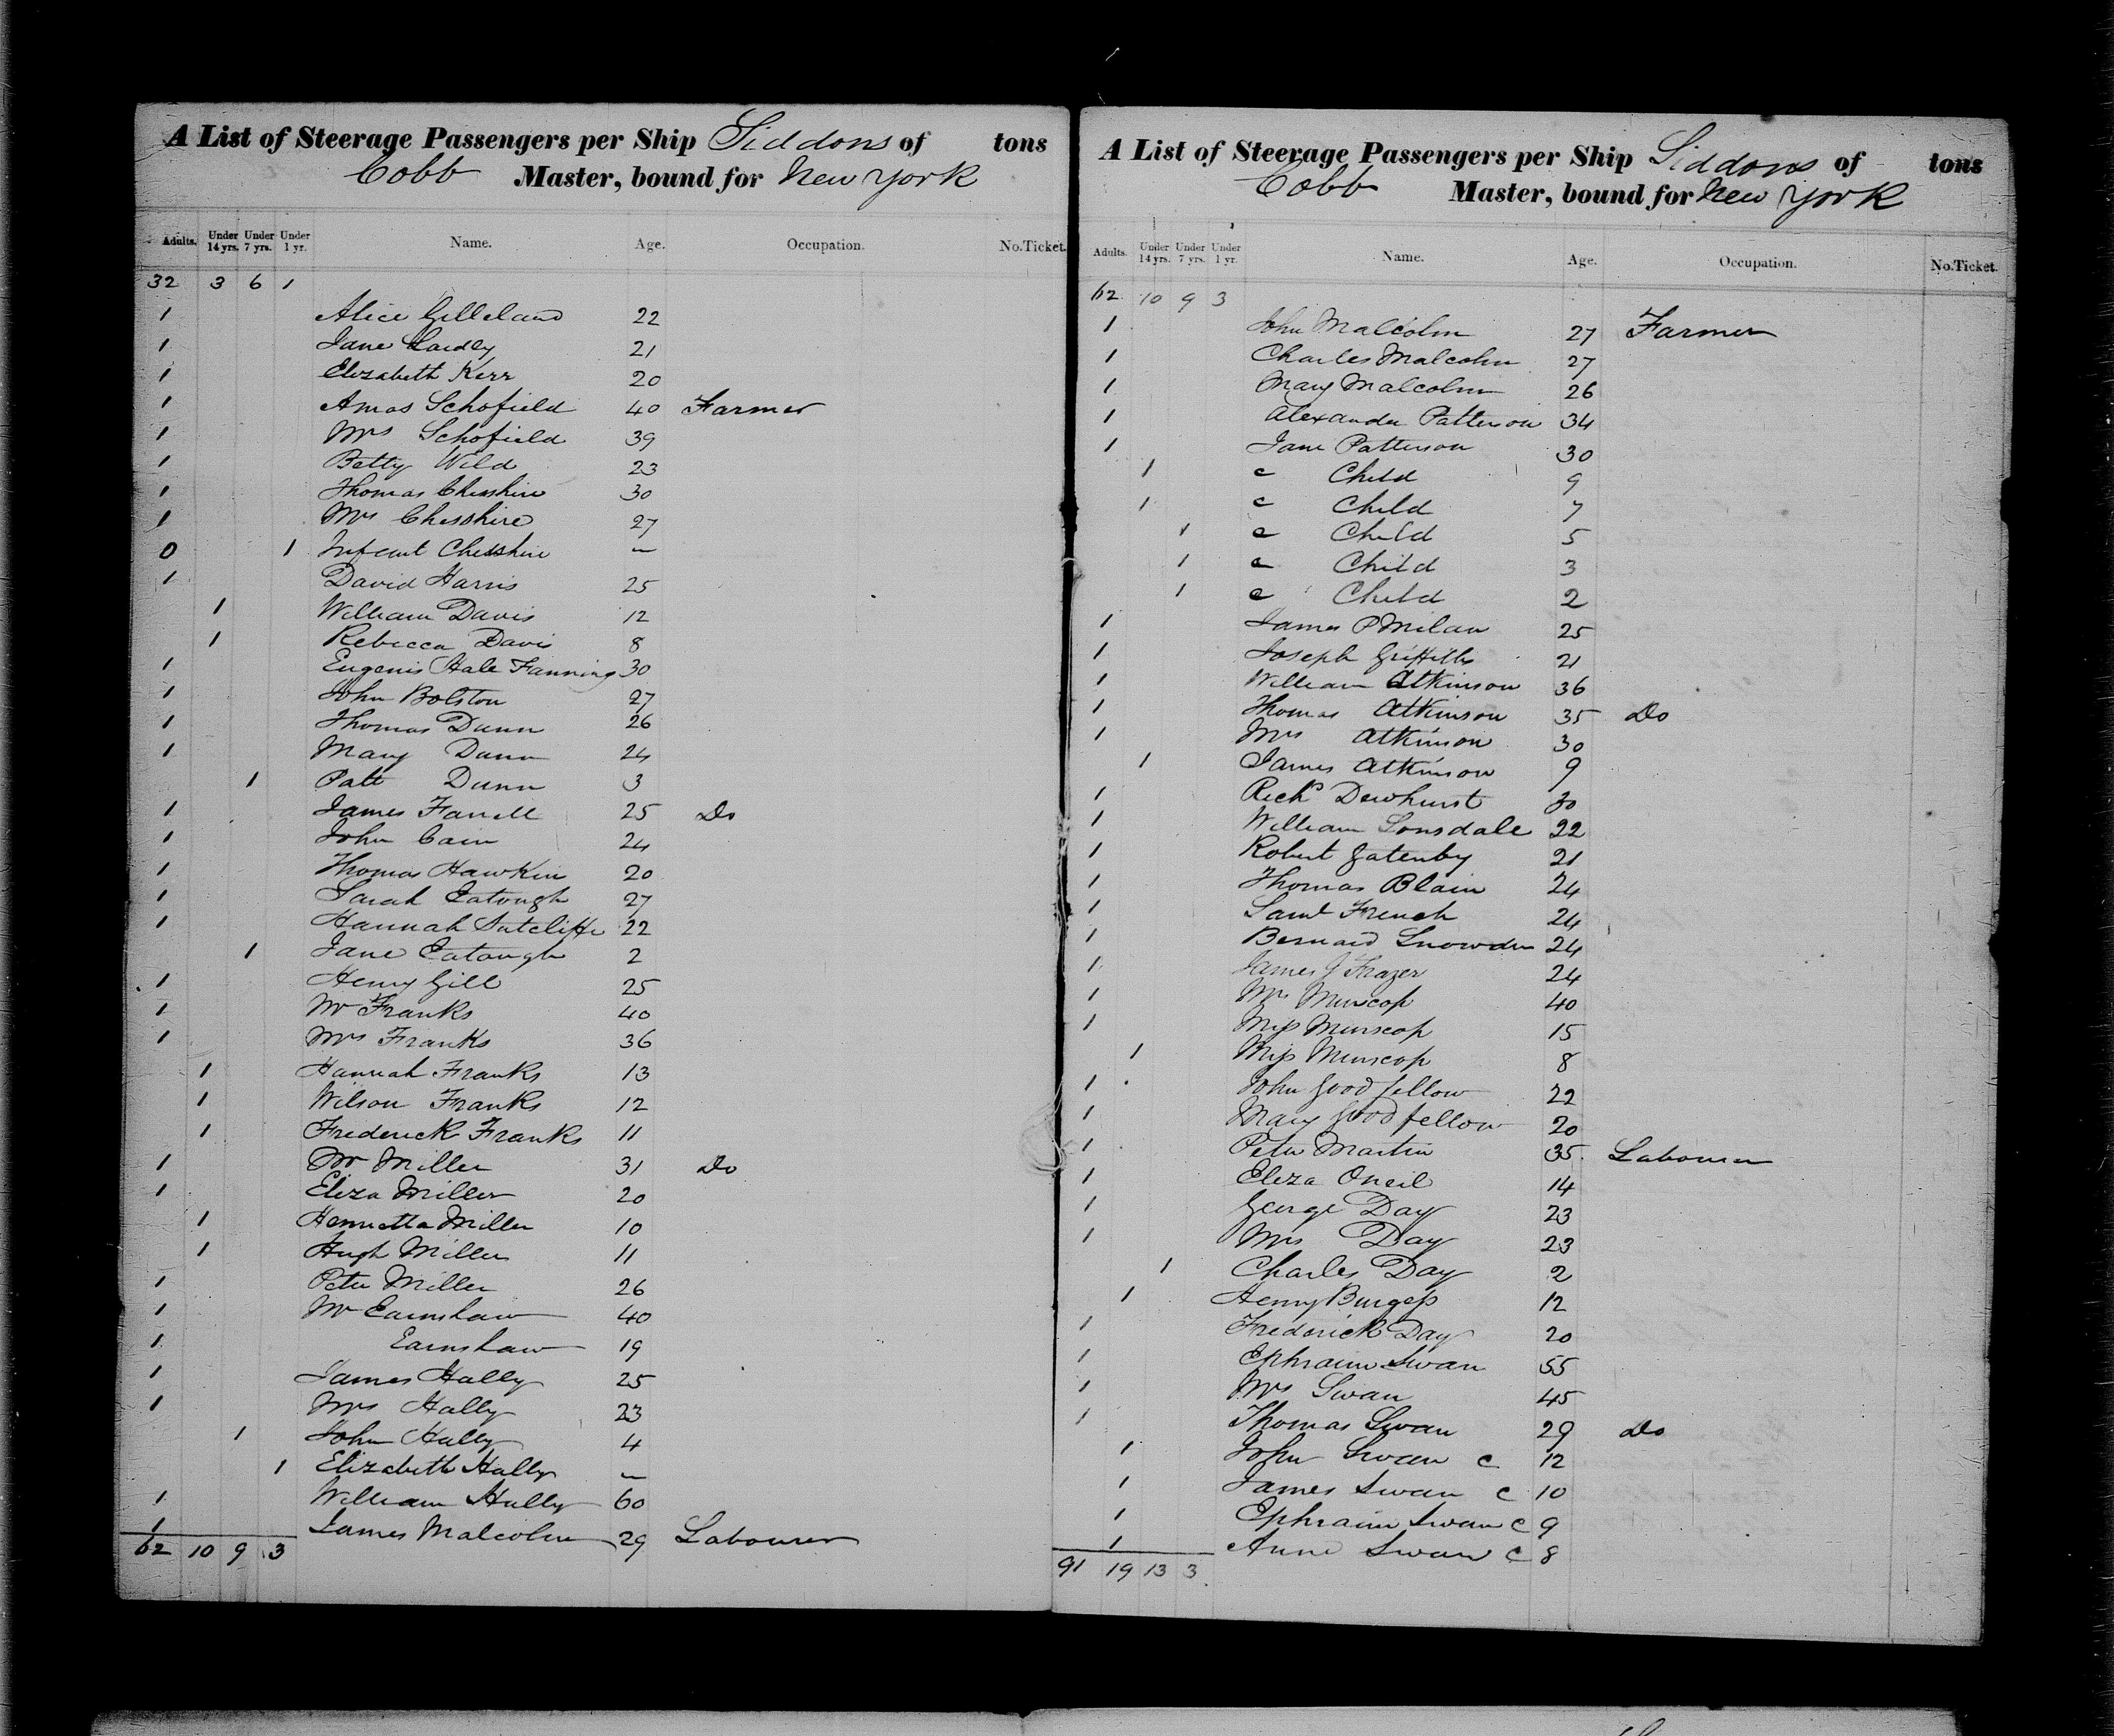 A List of Steerage Passengers per Ship Siddons of tons
Cobb Master, bound for New York
Adults. Under 14 yrs. Under 7 yrs. Under 1 yr. Name. Age. Occupation. No. Ticket.
32 3 6 1
1 Alice Gilleland 22
1 Jane 21
1 Elizabeth Kerr 20
1 Amos Schofield 40 Farmer
1 Mrs Schofield 39
1 Betty Wild 23
1 Thomas Chesshire 30
1 Mrs Chesshire 27
0 1 Infant Chesshire —
1 David Harris 25
1 William Davis 12
1 Rebecca Davis 8
1 Eugenis Hale Fanning 30
1 John Bolston 27
1 Thomas Dunn 26
1 Mary Dunn 24
1 Patt Dunn 3
1 James Farrell 25 Do
1 John Cain 24
1 Thomas Hawkin 20
1 Sarah Eatough 27
1 Hannah Sutcliffe 22
1 Jane Eatough 2
1 Henry Gill 25
1 Mr Franks 40
1 Mrs Franks 36
1 Hannah Franks 13
1 Wilson Franks 12
1 Frederick Franks 11
1 Mr Miller 31 Do
1 Eliza Miller 20
1 Henrietta Miller 10
1 Hugh Miller 11
1 Peter Miller 26
1 Mr Earnshaw 40
1 Earnshaw 19
1 James Hally 25
1 Mrs Hally 23
1 John Hally 4
1 Elizabeth Hally —
1 William Hally 60
1 James Malcolm 29 Labourer
62 10 9 3
A List of Steerage Passengers per Ship Siddons of tons
Cobb Master, bound for New York
Adults. Under 14 yrs. Under 7 yrs. Under 1 yr. Name. Age. Occupation. No. Ticket.
62 10 9 3
1 John Malcolm 27 Farmer
1 Charles Malcolm 27
1 Mary Malcolm 26
1 Alexander Patterson 34
1 Jane Patterson 30
1 c Child 9
1 c Child 7
1 c Child 5
1 c Child 3
1 c Child 2
1 James P Milan 25
1 Joseph Griffiths 21
1 William Atkinson 36
1 Thomas Atkinson 35 Do
1 Mrs Atkinson 30
1 James Atkinson 9
1 Richd Dewhurst 30
1 William Lonsdale 22
1 Robert Gatenby 21
1 Thomas Blain 24
1 Saml French 24
1 Bernard Snowden 24
1 James J Frazer 24
1 Mrs Munscop 40
1 Miss Munscop 15
1 Miss Munscop 8
1 John Goodfellow 22
1 Mary Goodfellow 20
1 Peter Martin 35 Labourer
1 Eliza Oneil 14
1 George Day 23
1 Mrs Day 23
1 Charles Day 2
1 Henry Burgess 12
1 Frederick Day 20
1 Ephraim Swan 55
1 Mrs Swan 45
1 Thomas Swan 29 Do
1 John Swan c 12
1 James Swan c 10
1 Ephraim Swan c 9
1 Anne Swan c 8
91 19 13 3